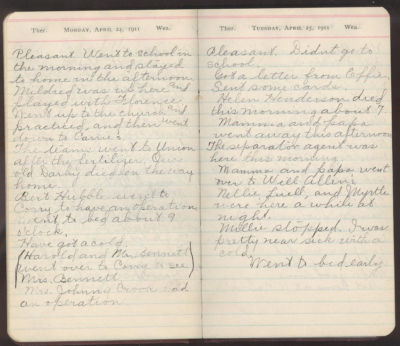 Ther. MONDAY, APRIL 24, 1911 Wea.
Pleasant. Went to school in
the morning and stayed
to home in the afternoon.
Mildred was up here and
played with Florence.
Went up to the church and
practiced, and then went
down to
The teams went to Union
after the fertilizer. Our
old died on the way
home.
Bert Hubble went to
Corry to have an operation
went to bed about 9
o'clock.
Have got a cold.
(Harold and Mr. Bennett
went over to Corry to see
Mrs. Bennett.)
Mrs. Johnny Crook had
an operation
Ther. TUESDAY, APRIL 25, 1911 Wea.
Pleasant. Didn't go to
school.
Got a letter from Effie.
Sent some cards.
Helen Henderson died
this morning about 7
Mamma and papa
went away this afternoon
The separator agent was
here this morning.
Mamma and papa went
over to Will
Nellie, and Myrtle
were here a while at
night.
Millie stopped. I was
pretty near sick with a
cold.
Went to bed early